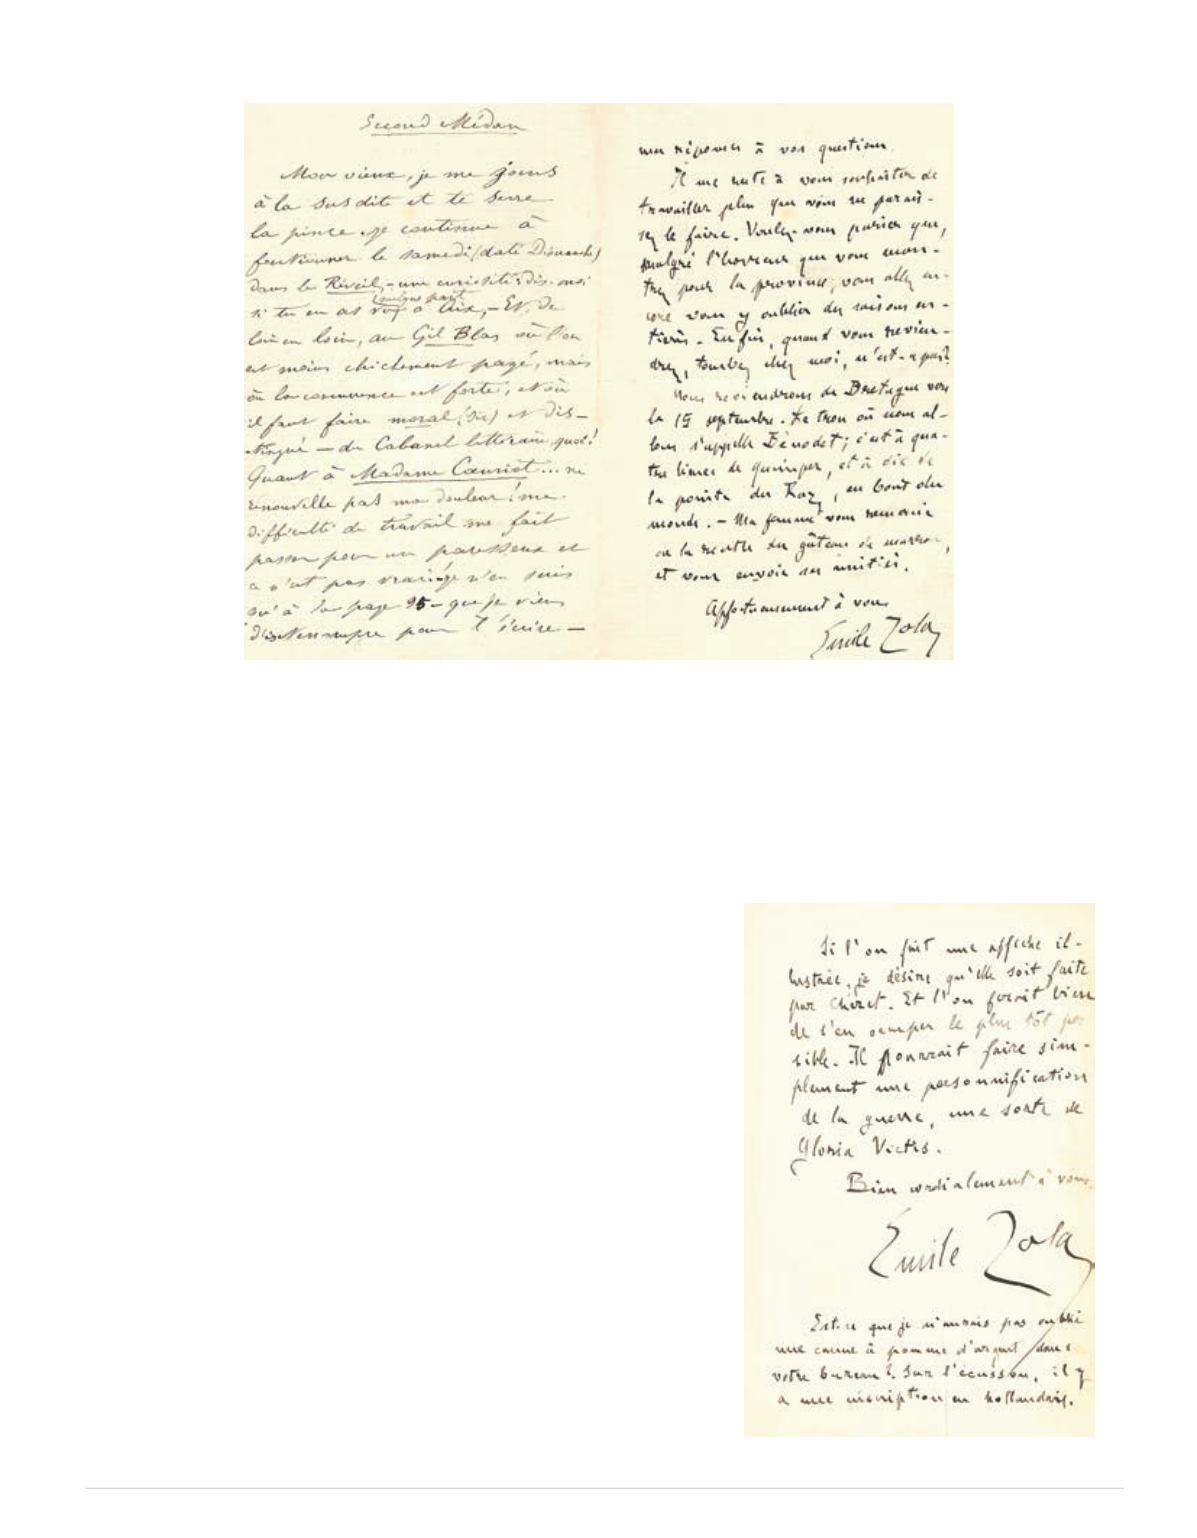 Second Médan
Mon vieux, je me joins
à la susdite et te serre
la pince. Je continue à
fonctionner le samedi (daté Dimanche)
dans le Réveil, - une curiosité : dis-moi
si tu en as vu quelque part à Aix, - Et, de
loin en loin, au Gil Blas où l'on
est moins chichement payé, mais
où la concurrence est forte, et où
il faut faire moral (sic) et dis-
tingué — du Cabanel littéraire, quoi!
Quant à Madame Cœuriot... ne
renouvelle pas ma douleur! ma
difficulté de travail me fait
passer pour un paresseux et
ce n'est pas vrai; je n'en suis
qu'à la page 95 - que je viens
d'interrompre pour t'écrire —
mes réponses à vos questions.
Il me reste à vous souhaiter de
travailler plus que vous ne parais-
sez le faire. Voulez-vous parier que,
malgré l'horreur que vous mon-
trez pour la province, vous allez en-
core vous y oublier des saisons en-
tières. Enfin, quand vous revien-
drez, tombez chez moi, n'est-ce pas?
Nous reviendrons de Bretagne vers
le 15 septembre. Le trou où nous al-
lons s'appelle Bénodet; c'est à qua-
tre lieues de Quimper, et à dix de
la pointe du Raz, au bout du
monde. - Ma femme vous remercie
de la recette du gâteau de marrons,
et vous envoie ses amitiés.
Affectueusement à vous
Emile Zola
Si l'on fait une affiche il-
lustrée, je désire qu'elle soit faite
par Chéret. Et l'on ferait bien
de s'en occuper le plus tôt pos-
sible. Il pourrait faire sim-
plement une personnification
de la guerre, une sorte de
Gloria Victis.
Bien cordialement à vous.
Emile Zola
Est-ce que je n'aurais pas oublié
une canne à pomme d'argent dans
votre bureau?. Sur l'écusson, il y
a une inscription en hollandais.